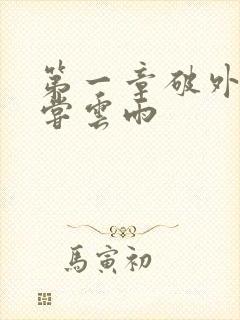 第一章破外
嘗雲雨
馬寅初